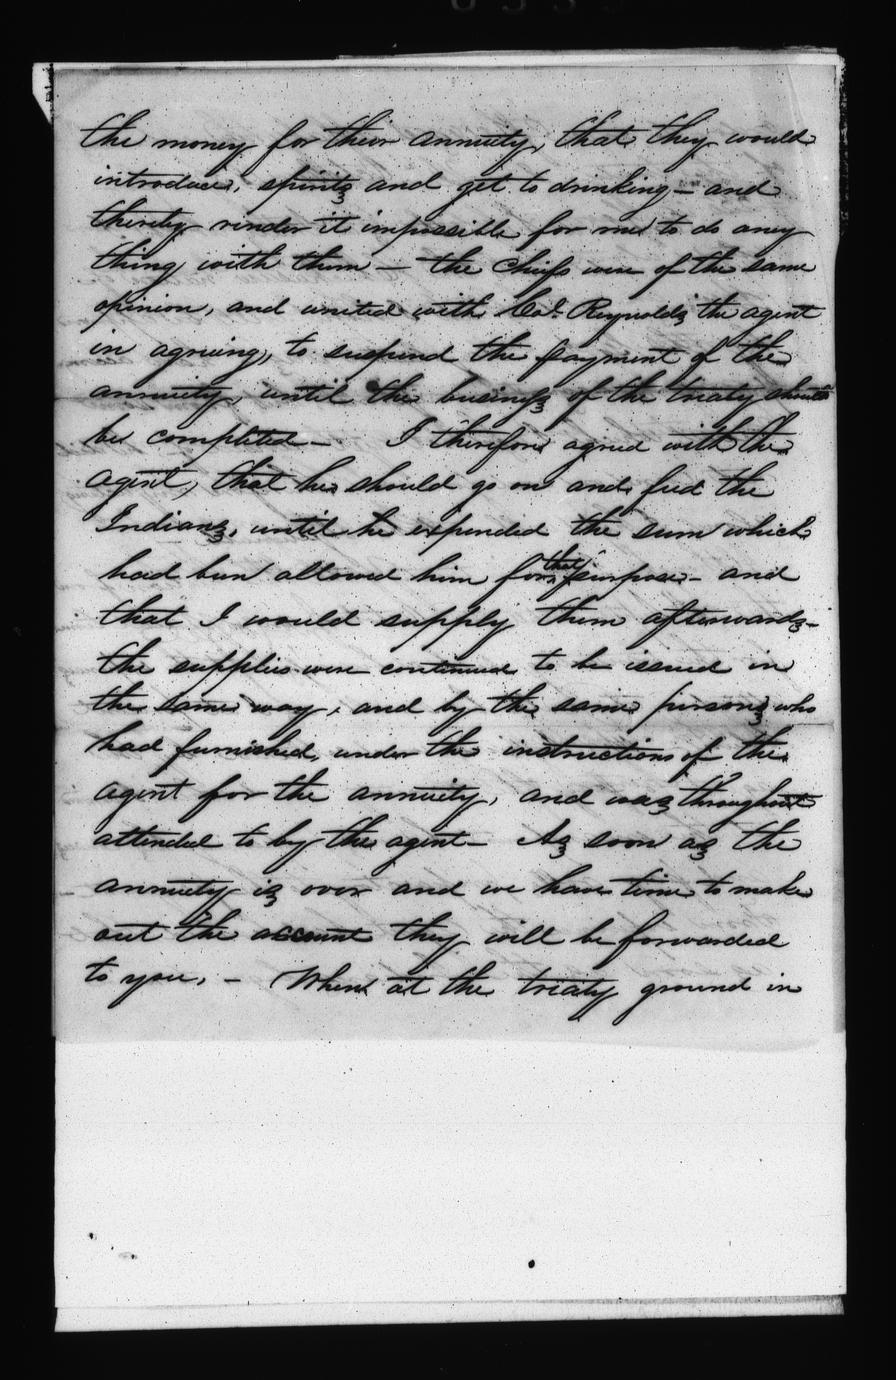 the money for their annuity, that they would
introduce, spirits and get to drinking — and
thereby render it impossible for me to do any
thing with them — the Chiefs were of the same
opinion, and united with Col. Reynolds the agent
in agreeing, to suspend the payment of the
annuity, until the business of the treaty should
be completed — I therefore agreed with the
agent, that he should go on and feed the
Indians, until he expended the sum which
had been allowed him for that purpose — and
that I would supply them afterwards —
the supplies were continued to be issued in
the same way, and by the same persons who
had furnished, under the instructions of the
agent for the annuity, and was throughout
attended to by the agent — As soon as the
annuity is over and we have time to make
out the account they will be forwarded
to you, — When at the treaty ground in